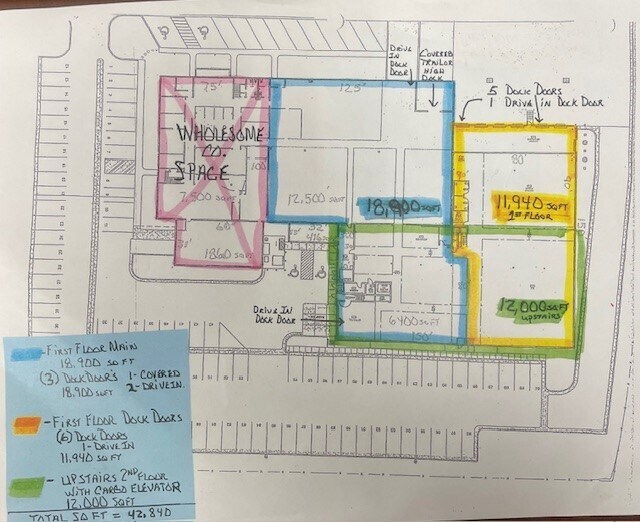 DRIVE
IN
DOCK
DOOR
COVERED
TRAILOR
HIGH
DOCK
5 DOCK DOORS
1 DRIVE IN DOCK DOOR
75'
125'
WHOLESOME
CO.
SPACE
100'
7,500 SQFT
12,500 SQFT
18,900 SQFT
80'
11,940 SQFT
1ST FLOOR
60'
32'
416
1860 SQFT
DRIVE IN
DOCK DOOR
6400 SQFT
150'
12,000 SQFT
UPSTAIRS
- FIRST FLOOR MAIN
18,900 SQ FT
(3) DOCK DOORS 1- COVERED
18,900 SQFT 2- DRIVE IN.
- FIRST FLOOR DOCK DOORS
(6) DOCK DOORS
1- DRIVE IN
11,940 SQ FT
- UPSTAIRS 2ND FLOOR
WITH CARGO ELEVATOR
12,000 SQFT
TOTAL SQ FT = 42,840